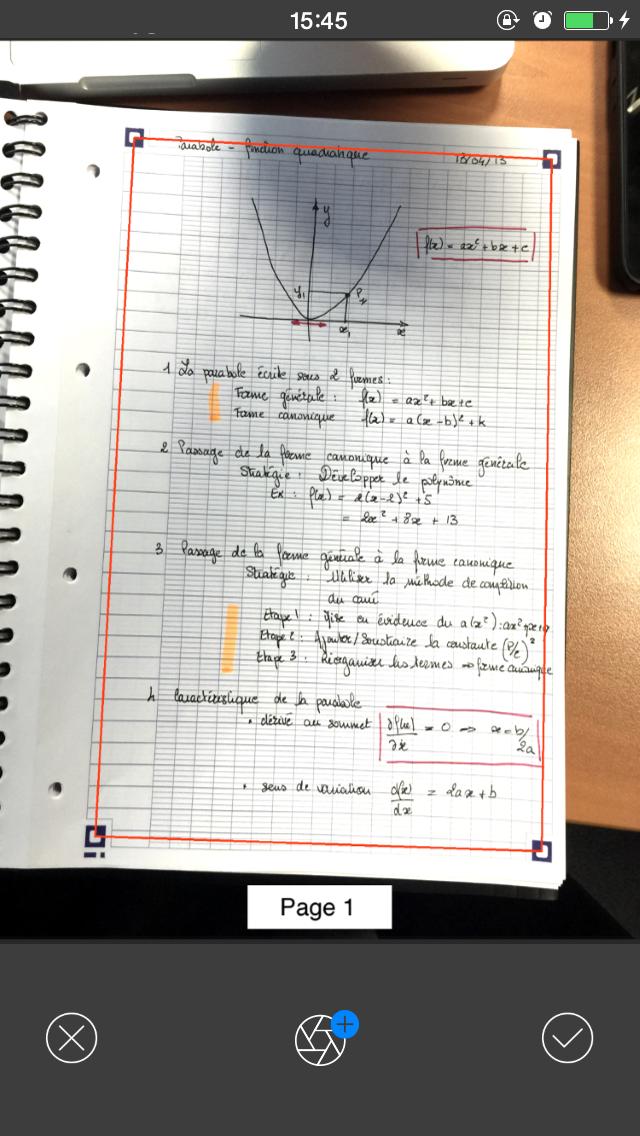 15:45
Parabole - fonction quadratique 18/04/13
y
f(x) = ax² + bx + c
y₁ P₁
x₁ x
1 La parabole écrite sous 2 formes :
Forme générale : f(x) = ax² + bx + c
Forme canonique f(x) = a(x - b)² + k
2 Passage de la forme canonique à la forme générale
Stratégie : Développer le polynôme
Ex : f(x) = 2(x-2)² + 5
= 2x² + 8x + 13
3 Passage de la forme générale à la forme canonique
Stratégie : Utiliser la méthode de complétion
du carré
Etape 1 : Mise en évidence du a(x²) : ax²
Etape 2 : Ajouter/Soustraire la constante (P/2)²
Etape 3 : Réorganiser les termes ⇒ forme canonique
4 Caractéristique de la parabole
• dérivé au sommet ∂f(x)/∂x = 0 ⇒ x = b/2a
• sens de variation d(x)/dx = 2ax + b
Page 1